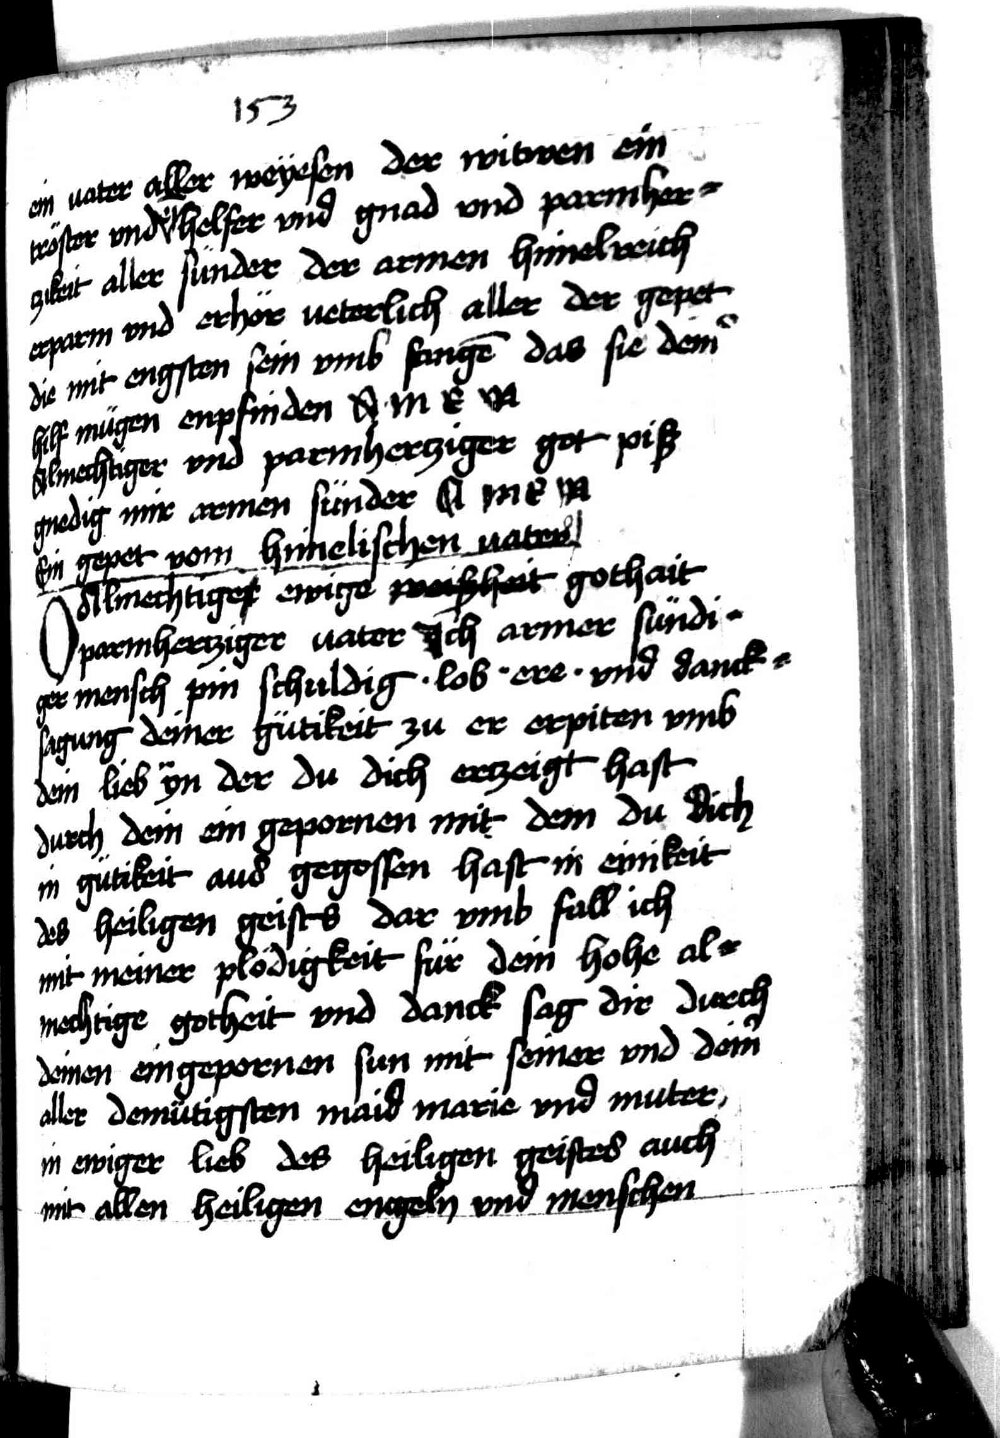 153
ein vater aller weÿesen der witwen ein
tröster vnd helfer vnd gnad vnd parmher-
tzikeit aller sünder der armen himelreich
erparm vnd erhör veterlich aller der gepet
die mit engsten sein vmb fangē das sie dein
hilf mügen enpfinden A M E N
Almechtiger vnd parmhertziger got piß
gnedig mir armen sünder A M E N
Ein gepet vom himelischen vater
O Almechtige ewige weißheit gothait
parmhertziger vater Ich armer sündi-
ger mensch pin schuldig · lob · ere · vnd danck-
sagung deiner gütikeit zu er erpiten vmb
dein lieb yn der du dich ertzeigt hast
durch dein ein gepornen mit dem du dich
in gütikeit aus gegossen hast in einikeit
des heiligen geists dar vmb fall ich
mit meiner plödigkeit für dein hohe al-
mechtige gotheit vnd danck sag dir durch
deinen eingepornen sun mit seiner vnd dein
aller demütigsten maid marie vnd muter
in ewiger lieb des heiligen geistes auch
mit allen heiligen engeln vnd menschen